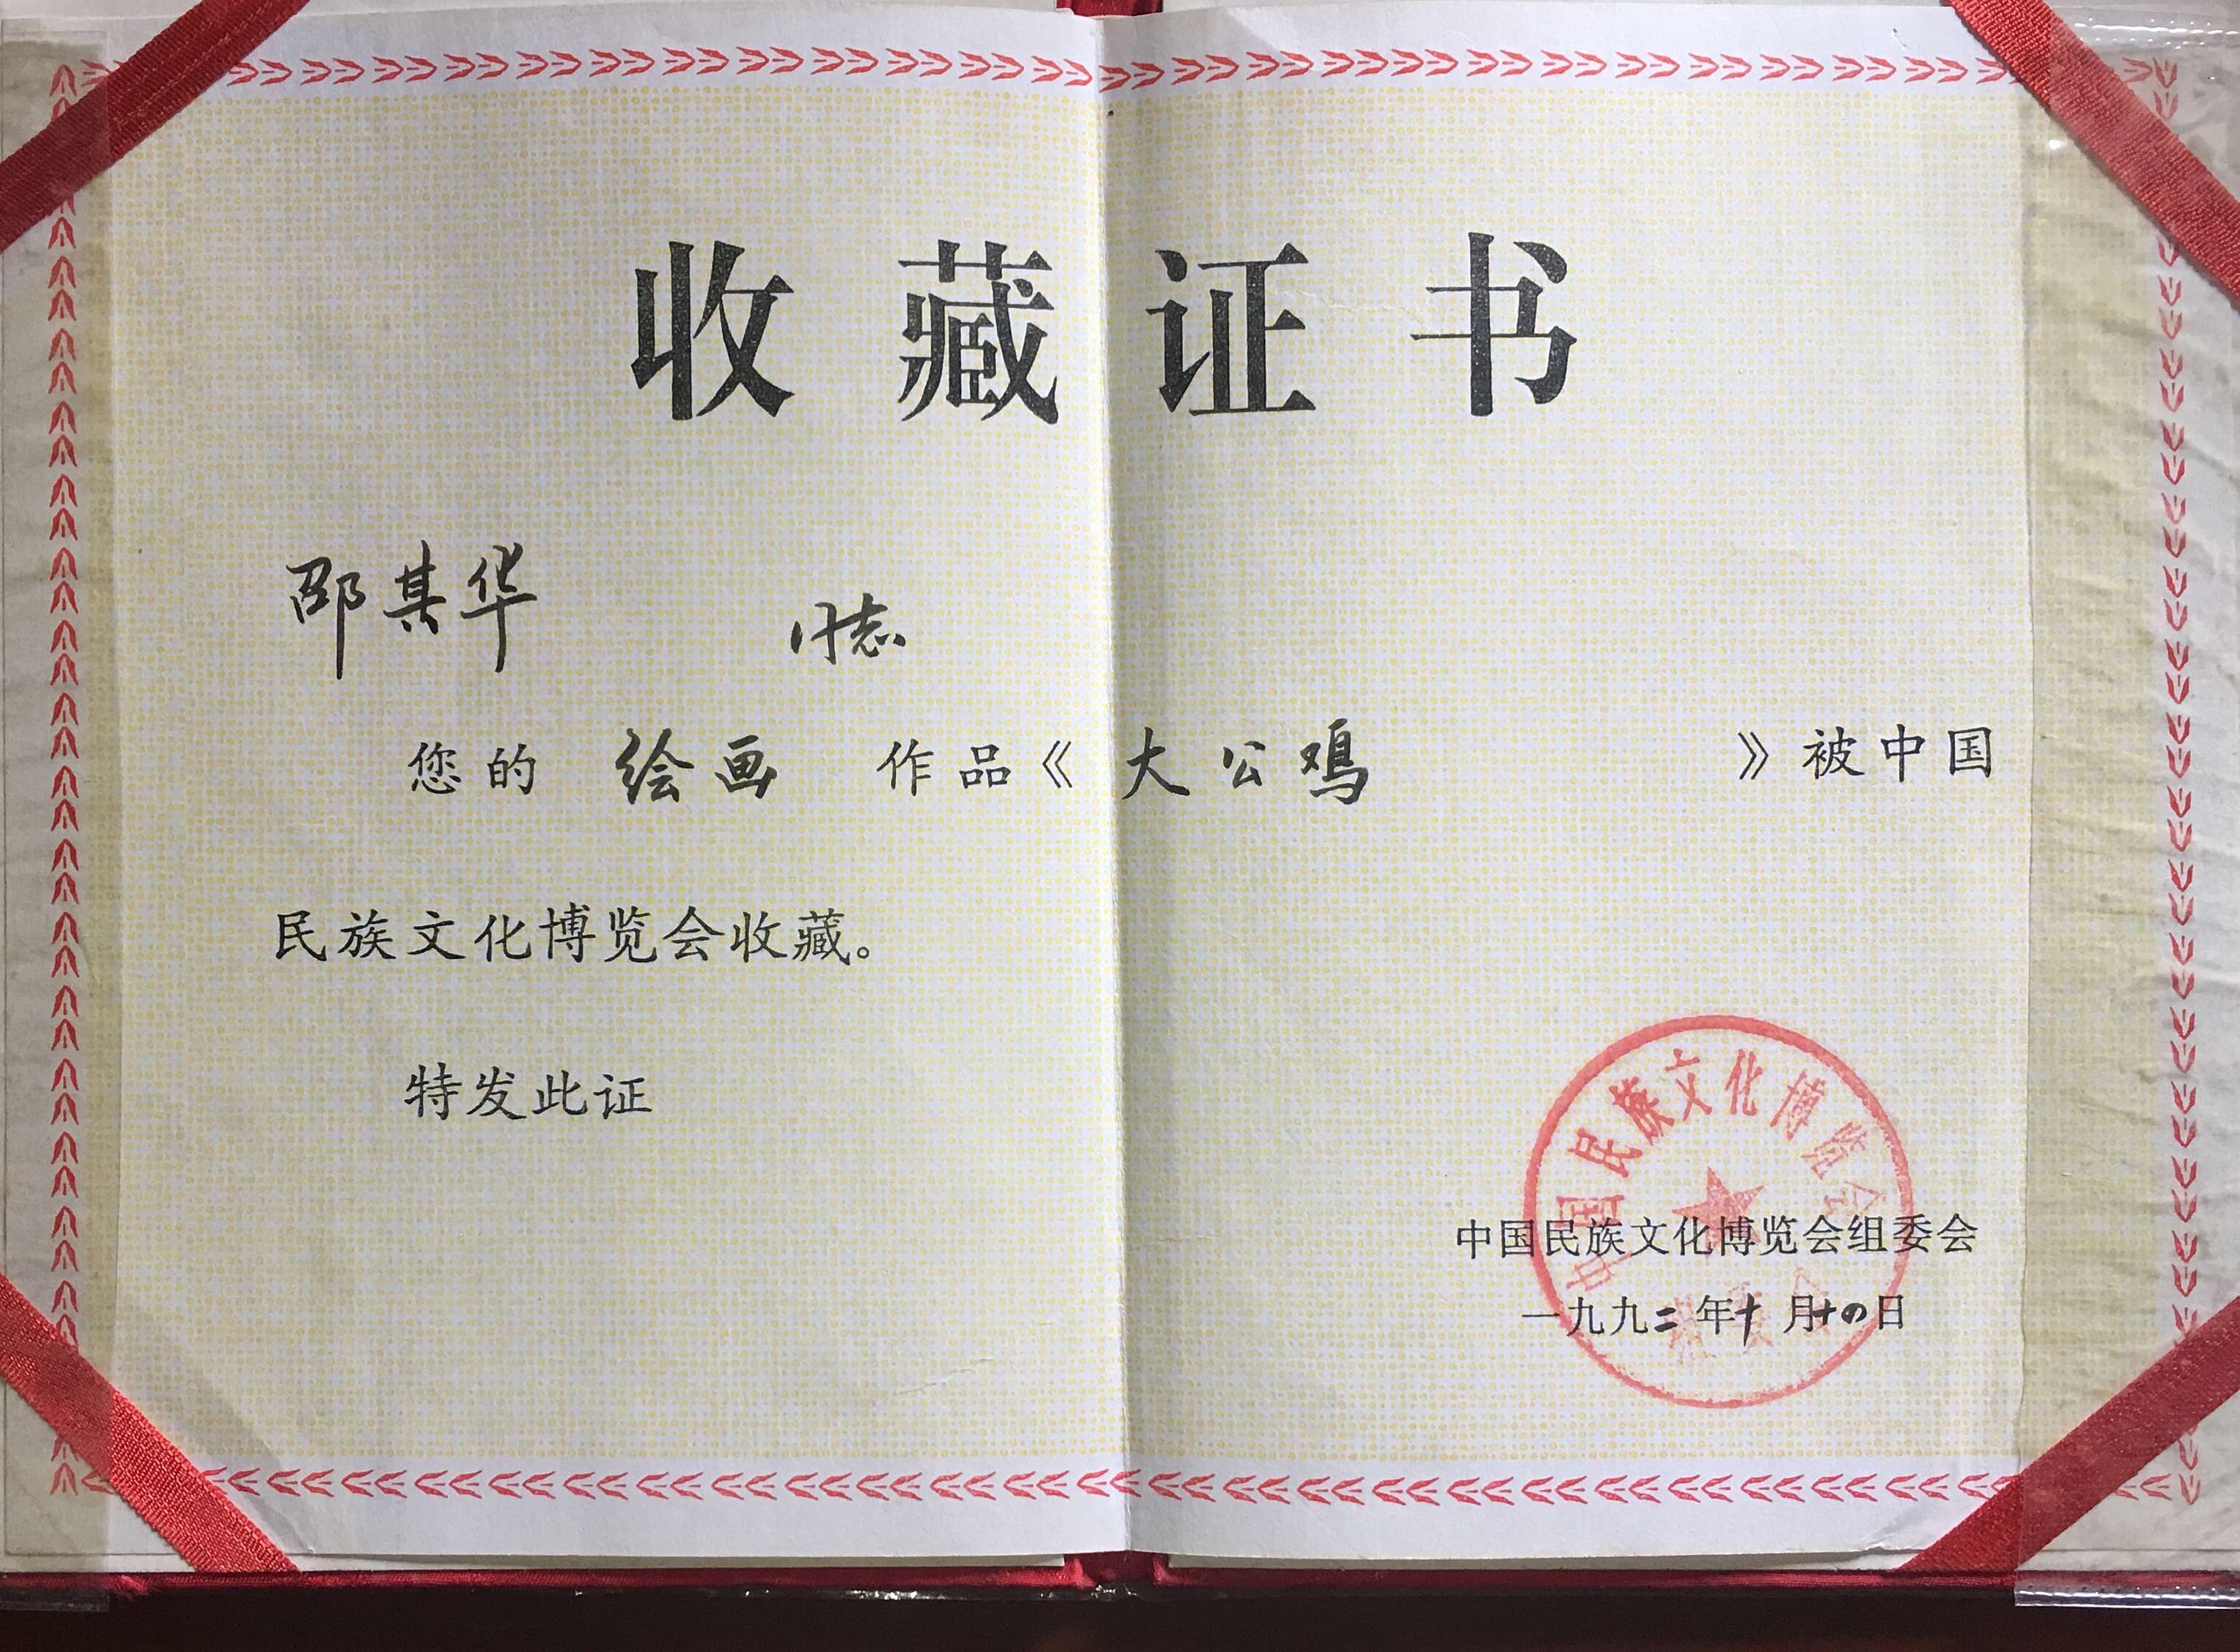 收藏证书
邵其华 同志
您的 绘画 作品《大公鸡》被中国
民族文化博览会收藏。
特发此证
中国民族文化博览会
组委会
中国民族文化博览会组委会
一九九二年十月十四日